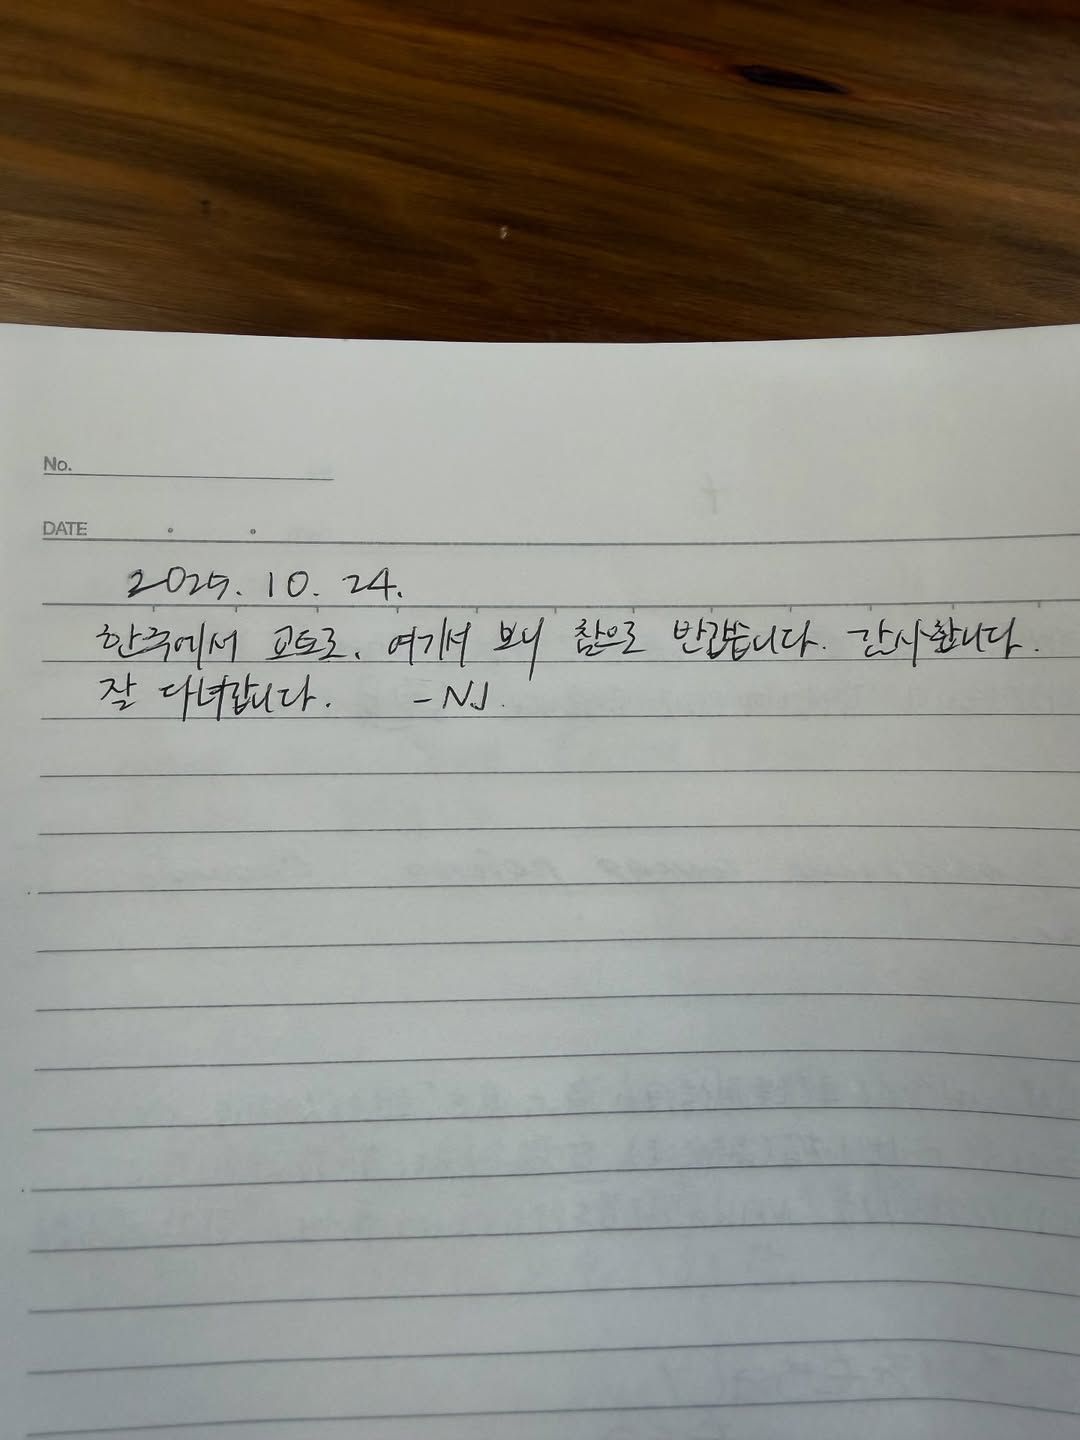 No.
DATE . .
2025. 10. 24.
한국에서 교토로. 여기서 보니 참으로 반갑습니다. 감사합니다.
잘 다녀갑니다. -NJ.